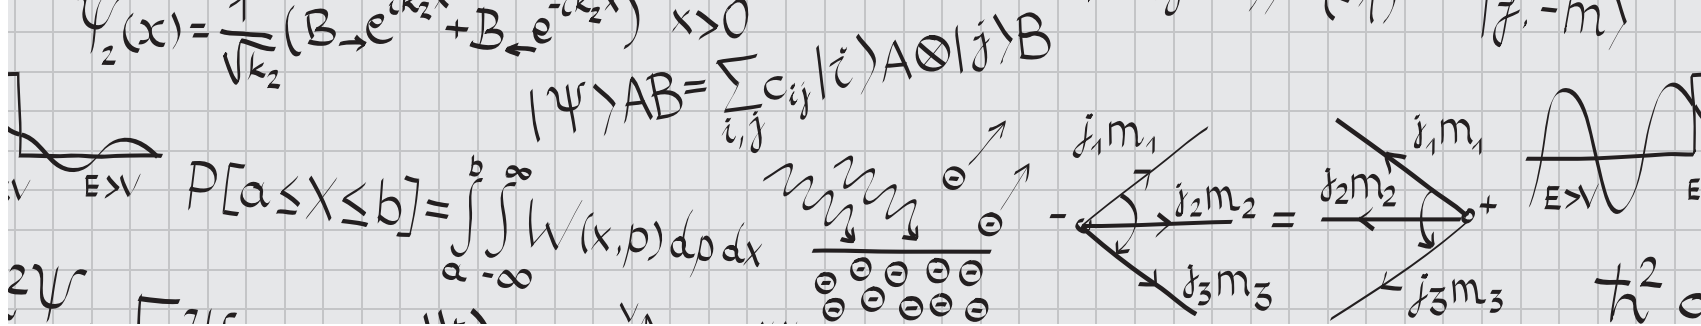 ψ₂(x) = 1/√k₂ (B→e^{ik₂x} + B←e^{-ik₂x}) x>0
|j, -m⟩
|ψ⟩AB = ∑_{i,j} c_{ij} |i⟩A⊗|j⟩B
E>V
P[a≤X≤b] = ∫_a^b ∫_{-∞}^{∞} W(x,p) dp dx
⊖ ⊖
⊖ ⊖ ⊖ ⊖ ⊖
⊖ ⊖ ⊖ ⊖ ⊖
- j₁m₁ j₂m₂ j₃m₃ = j₁m₁ j₂m₂ j₃m₃ +
E>V
E
²ψ
ħ²